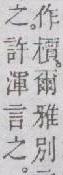 作檟。爾雅別
之。許渾言之。